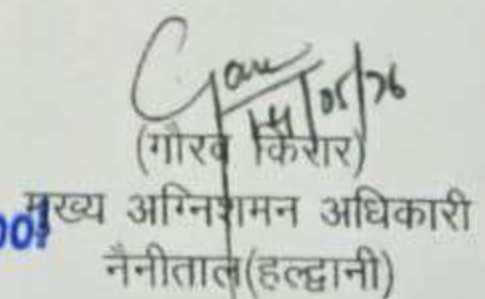 14/05/26
(गौरव किरार)
मुख्य अग्निशमन अधिकारी
नैनीताल(हल्द्वानी)